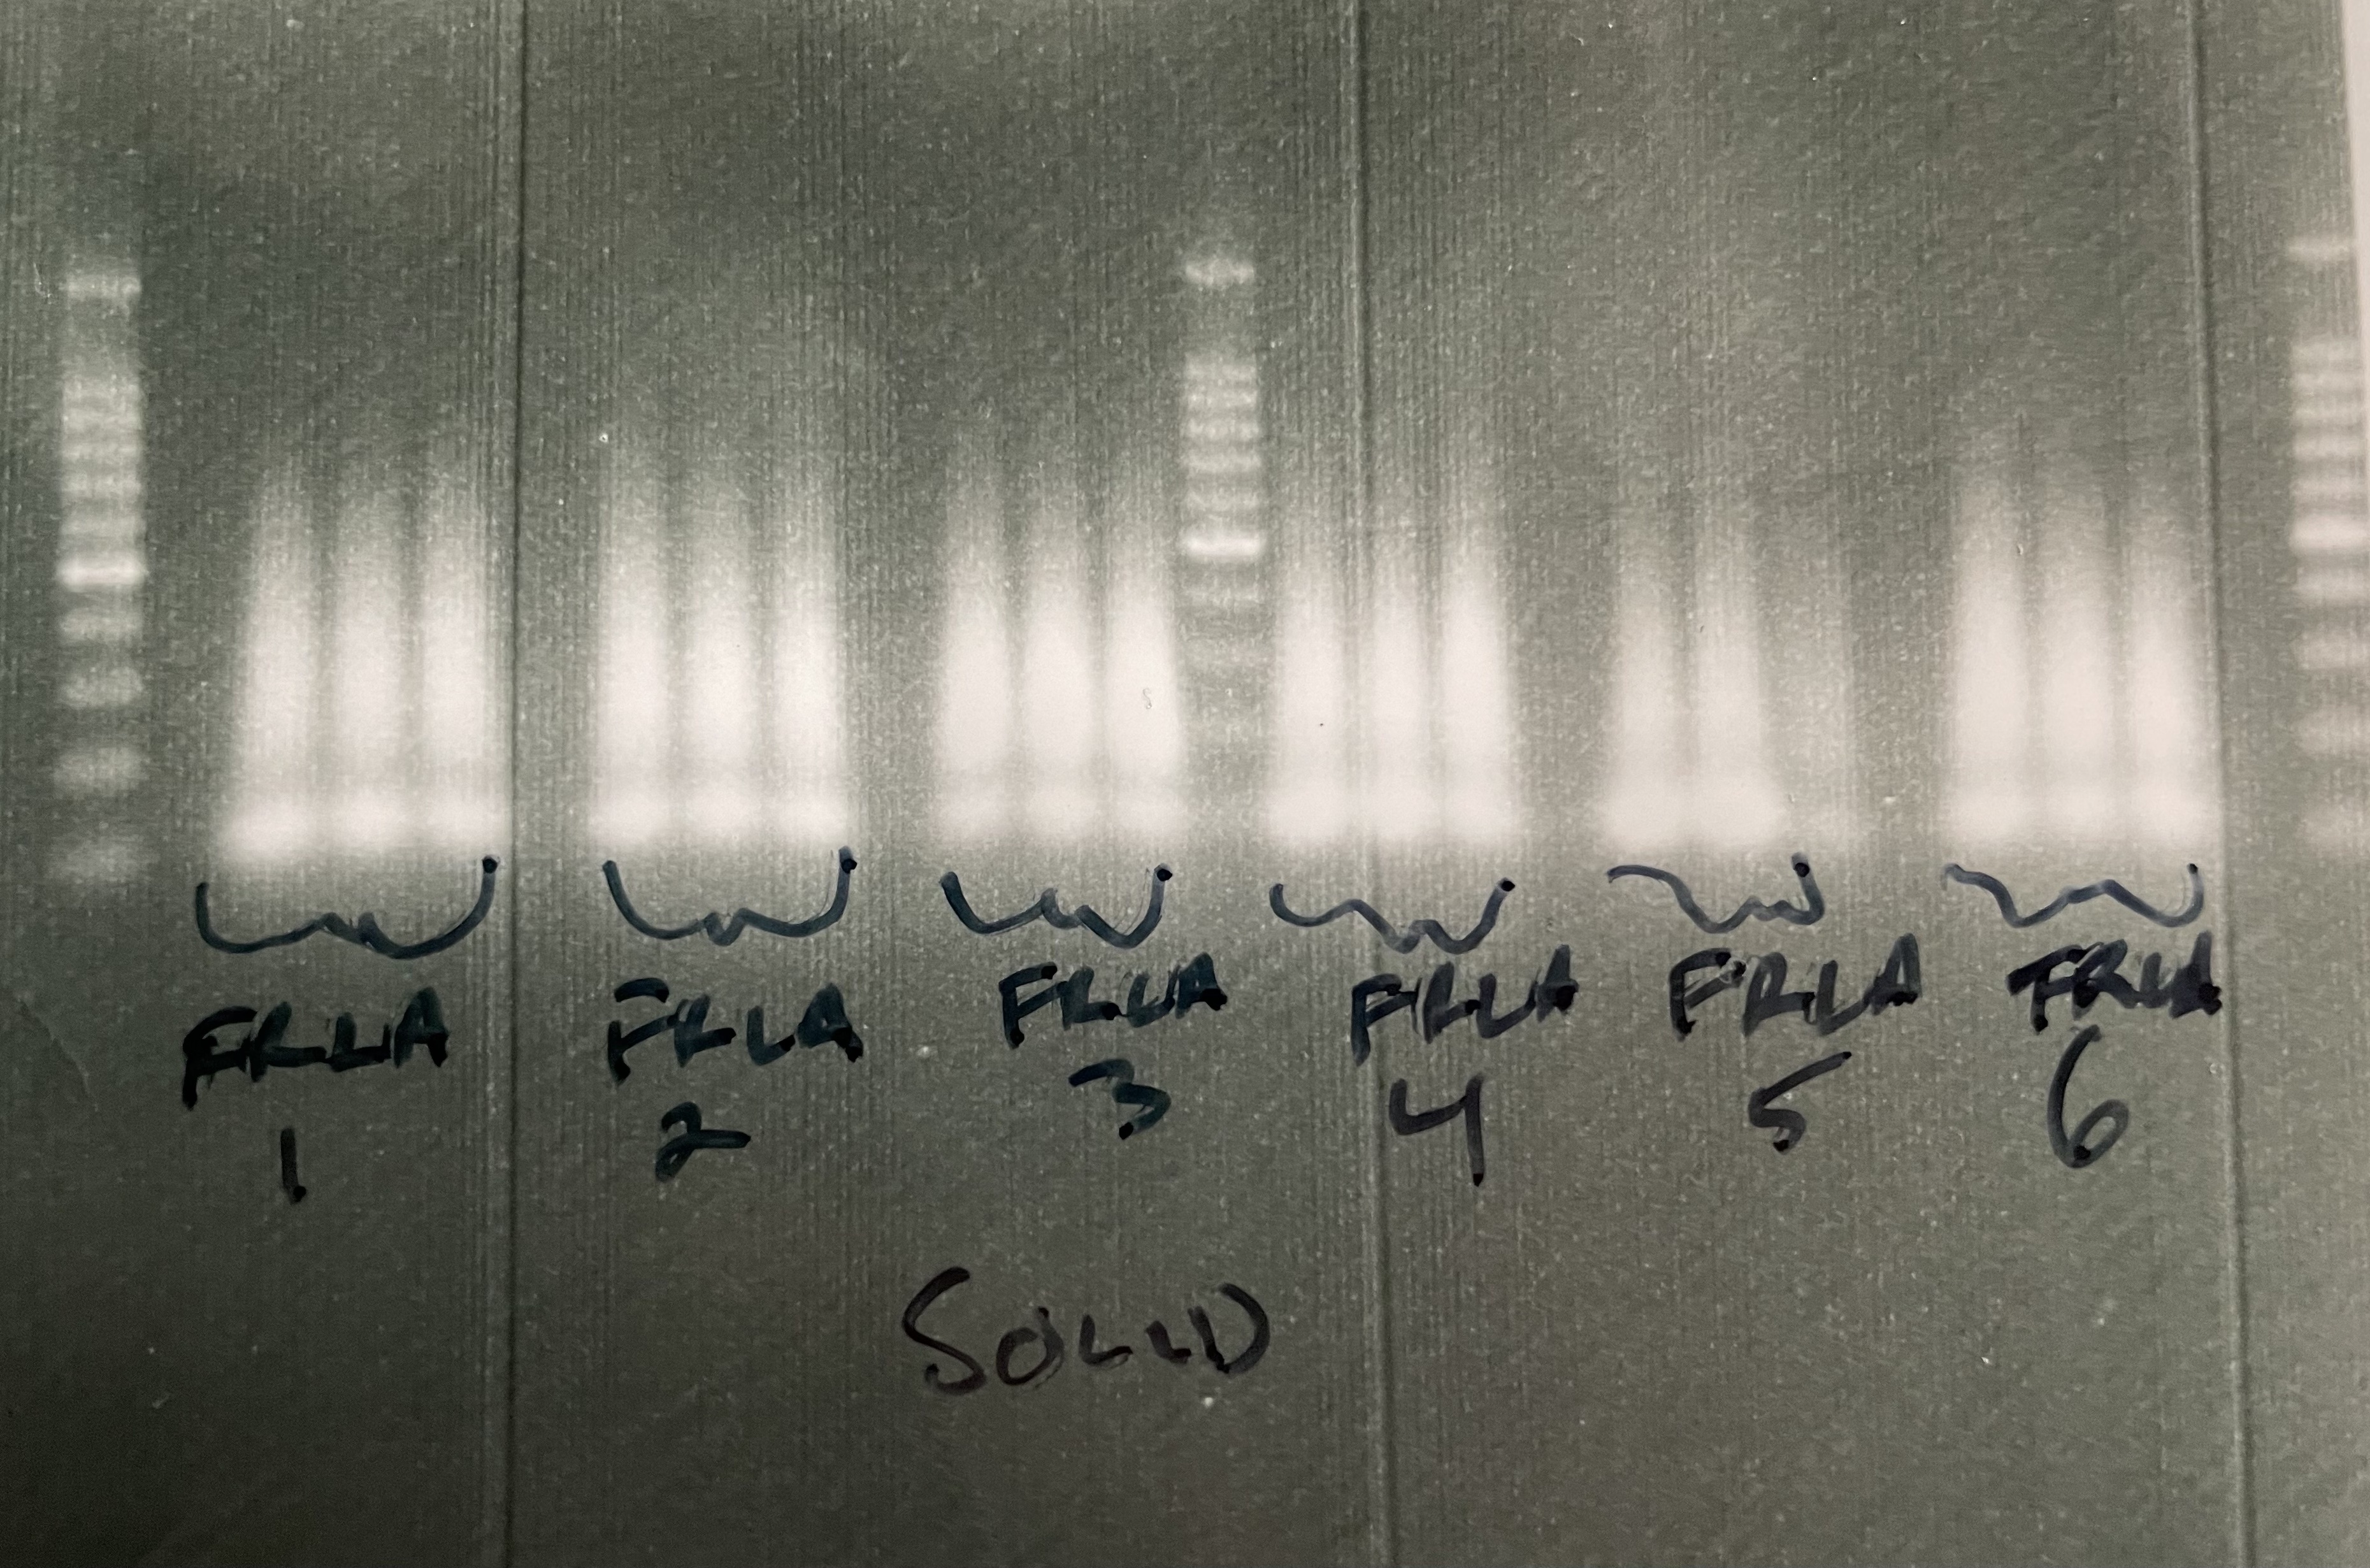 FRLA 1
FRLA 2
FRLA 3
FRLA 4
FRLA 5
FRLA 6
SOLID